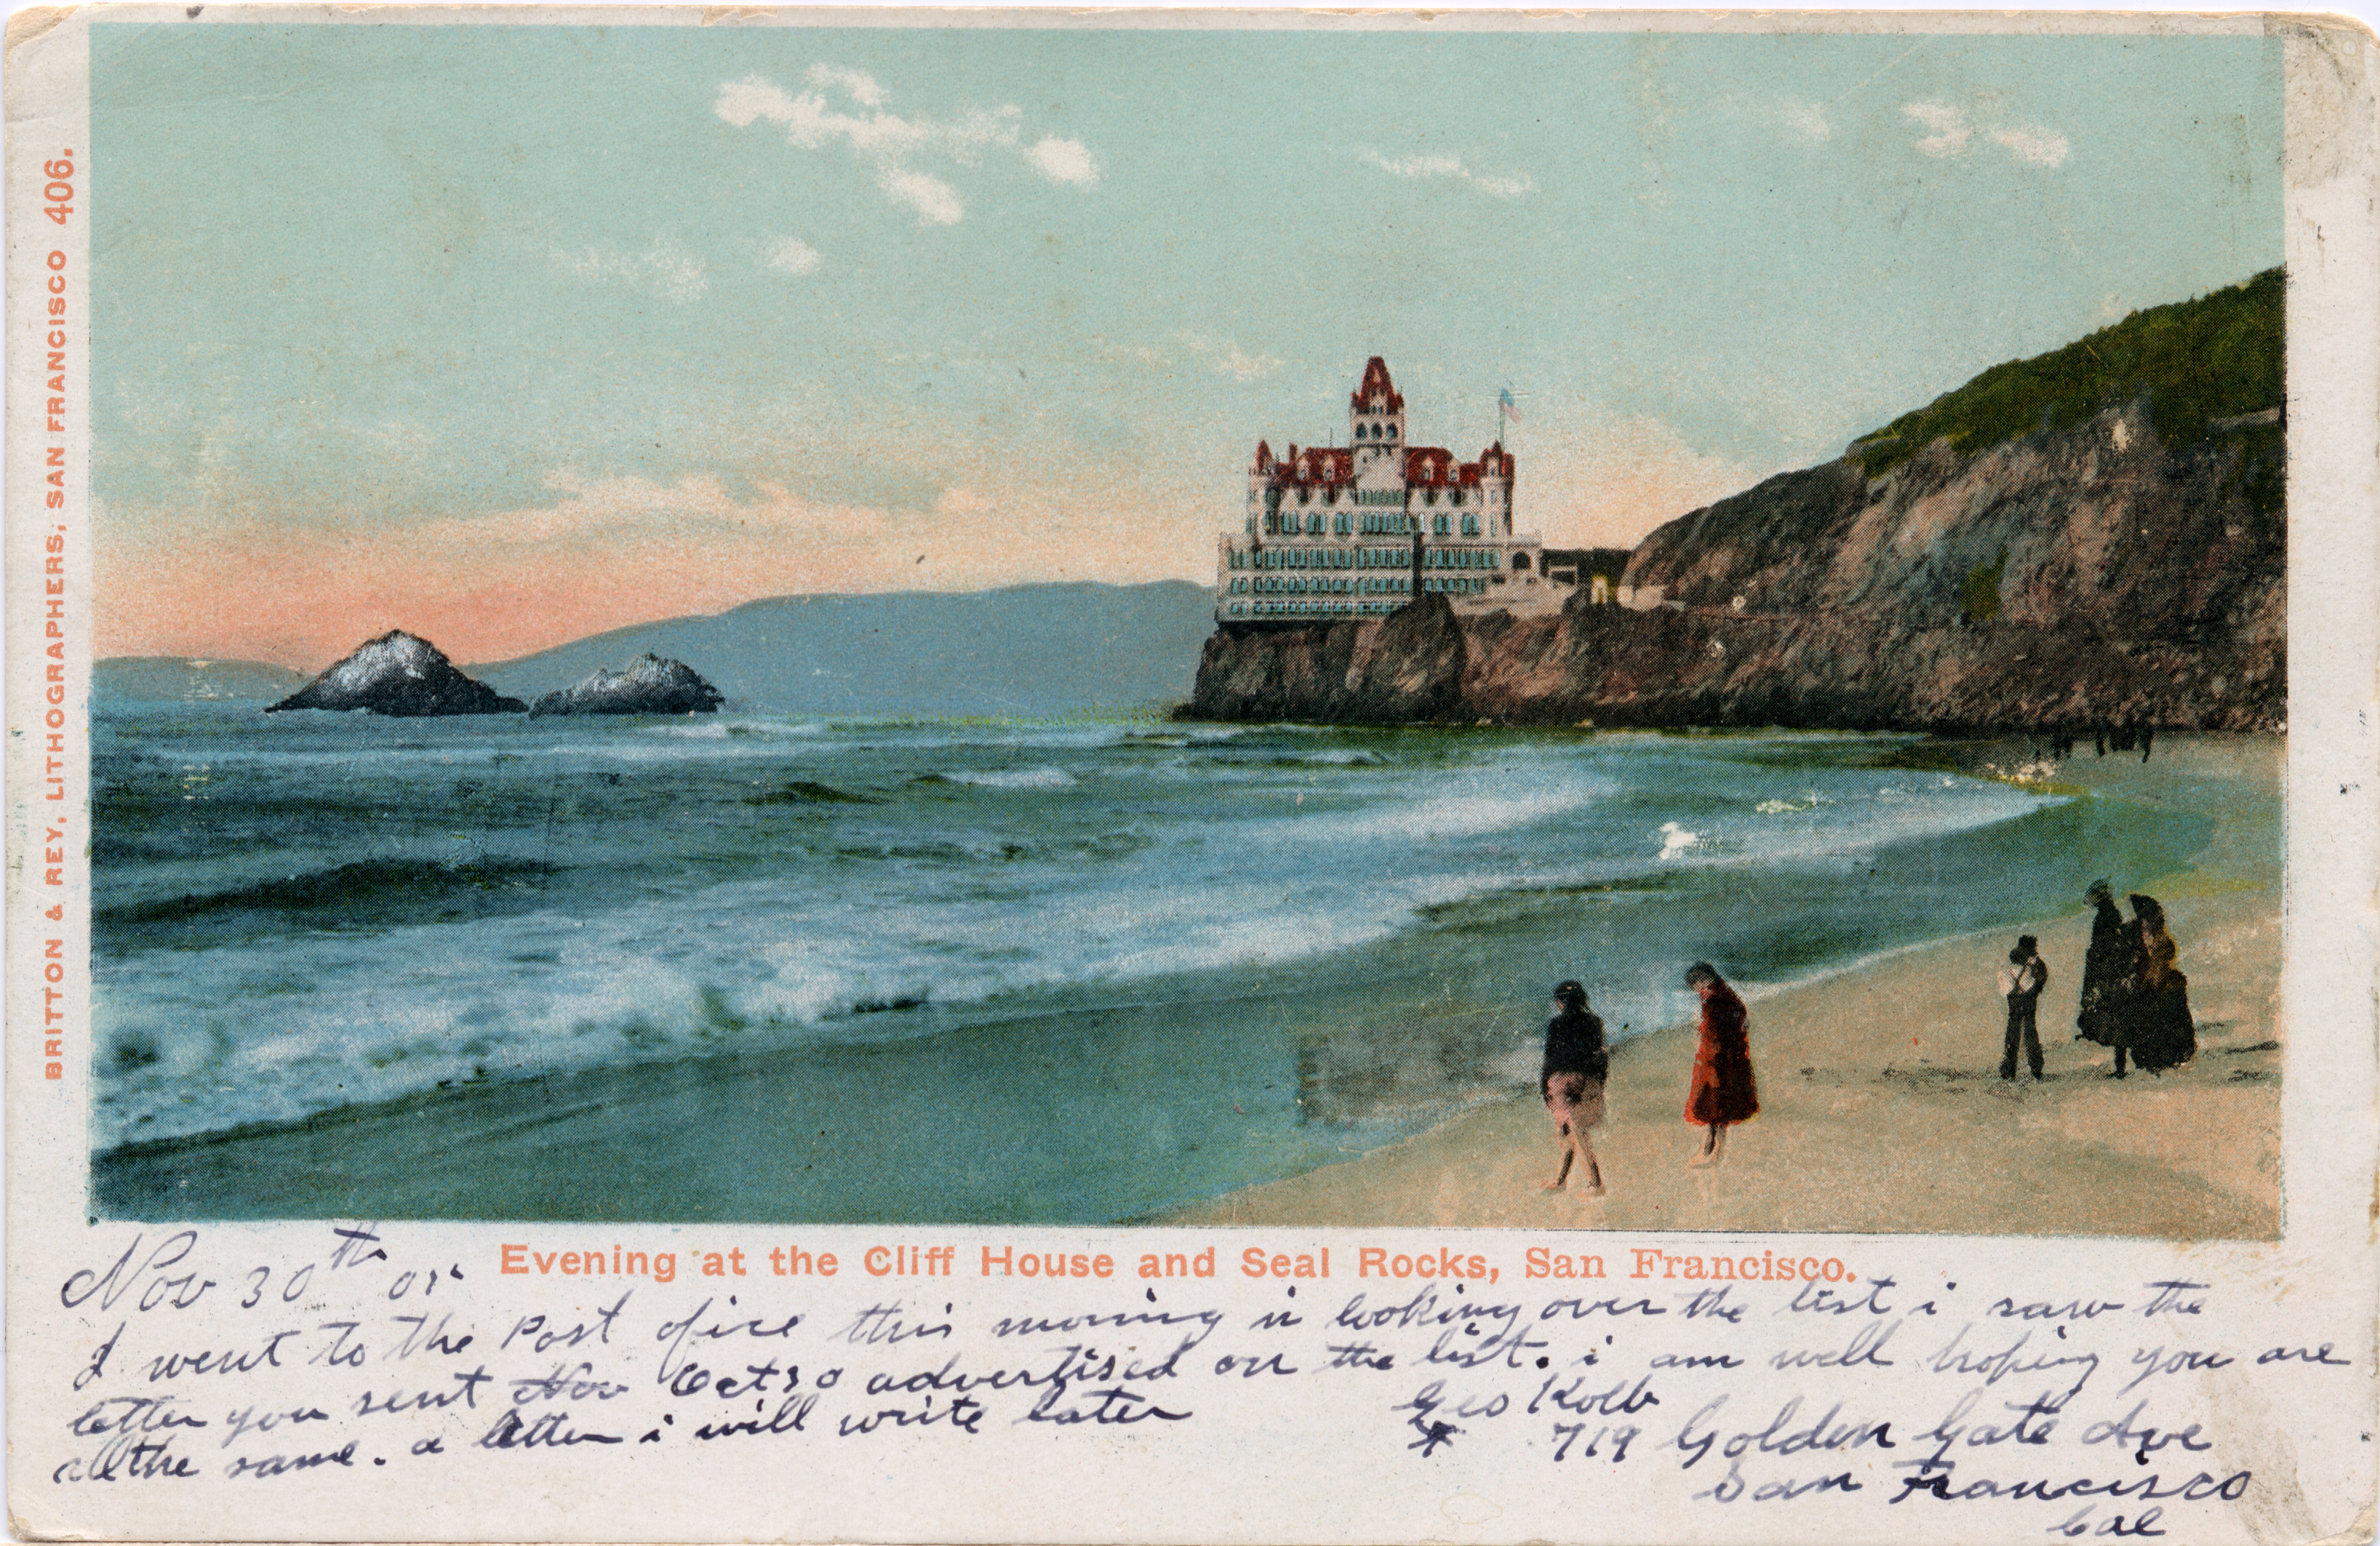 BRITTON & REY, LITHOGRAPHERS, SAN FRANCISCO 406.
Evening at the Cliff House and Seal Rocks, San Francisco.
Nov 30th
I went to the Post ofice this morning in looking over the list i saw the
letter you sent Nov Oct 30 advertised on the list. i am well hoping you are
all the same. a letter i will write later
Geo Kolb
719 Golden Gate Ave
San Francisco
Cal